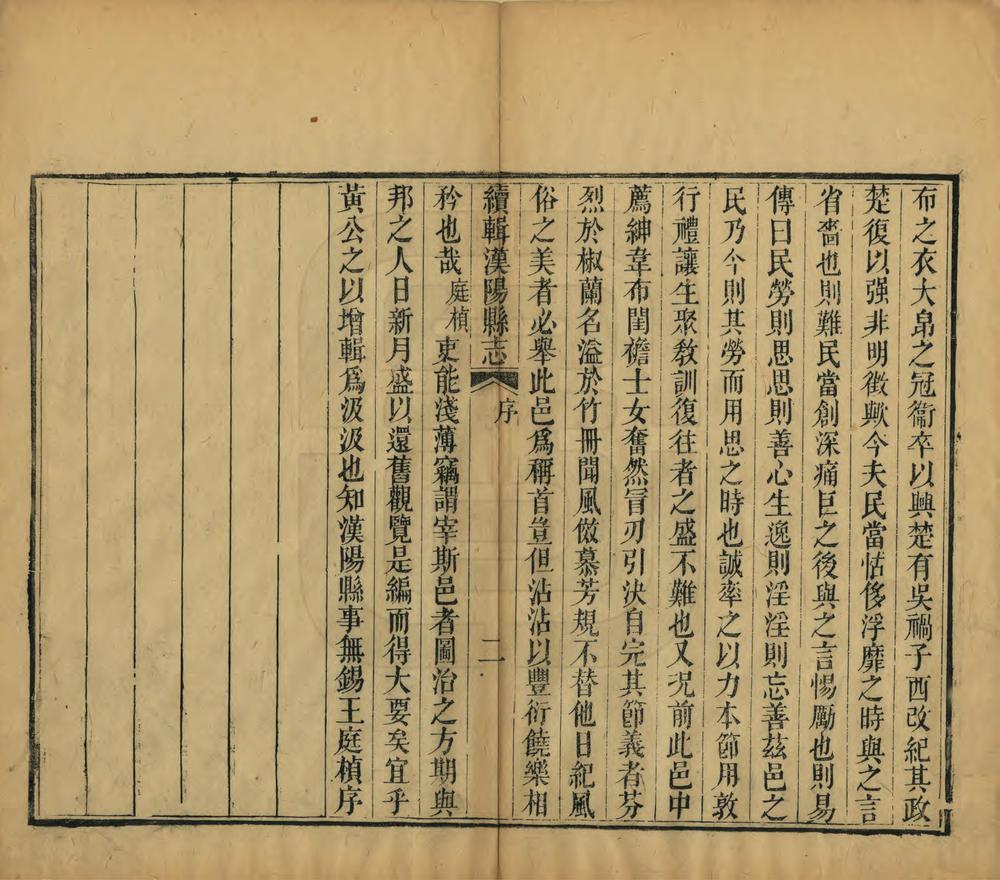 布之衣大帛之冠衞卒以興楚有吳禍子西改紀其政
楚復以强非明徵歟今夫民當怙侈浮靡之時與之言
省嗇也則難民當創深痛巨之後與之言惕勵也則易
傳曰民勞則思思則善心生逸則淫淫則忘善茲邑之
民乃今則其勞而用思之時也誠率之以力本節用敦
行禮讓生聚敎訓復往者之盛不難也又况前此邑中
薦紳韋布閨襜士女奮然冒刃引決自完其節義者芬
烈於椒蘭名溢於竹冊聞風倣慕芳規不替他日紀風
俗之美者必舉此邑爲稱首豈但沾沾以豐衍饒樂相
續輯漢陽縣志 序 二
矜也哉庭楨吏能淺薄竊謂宰斯邑者圖治之方期與
邦之人日新月盛以還舊觀覽是編而得大要矣宜乎
黃公之以增輯爲汲汲也知漢陽縣事無錫王庭楨序